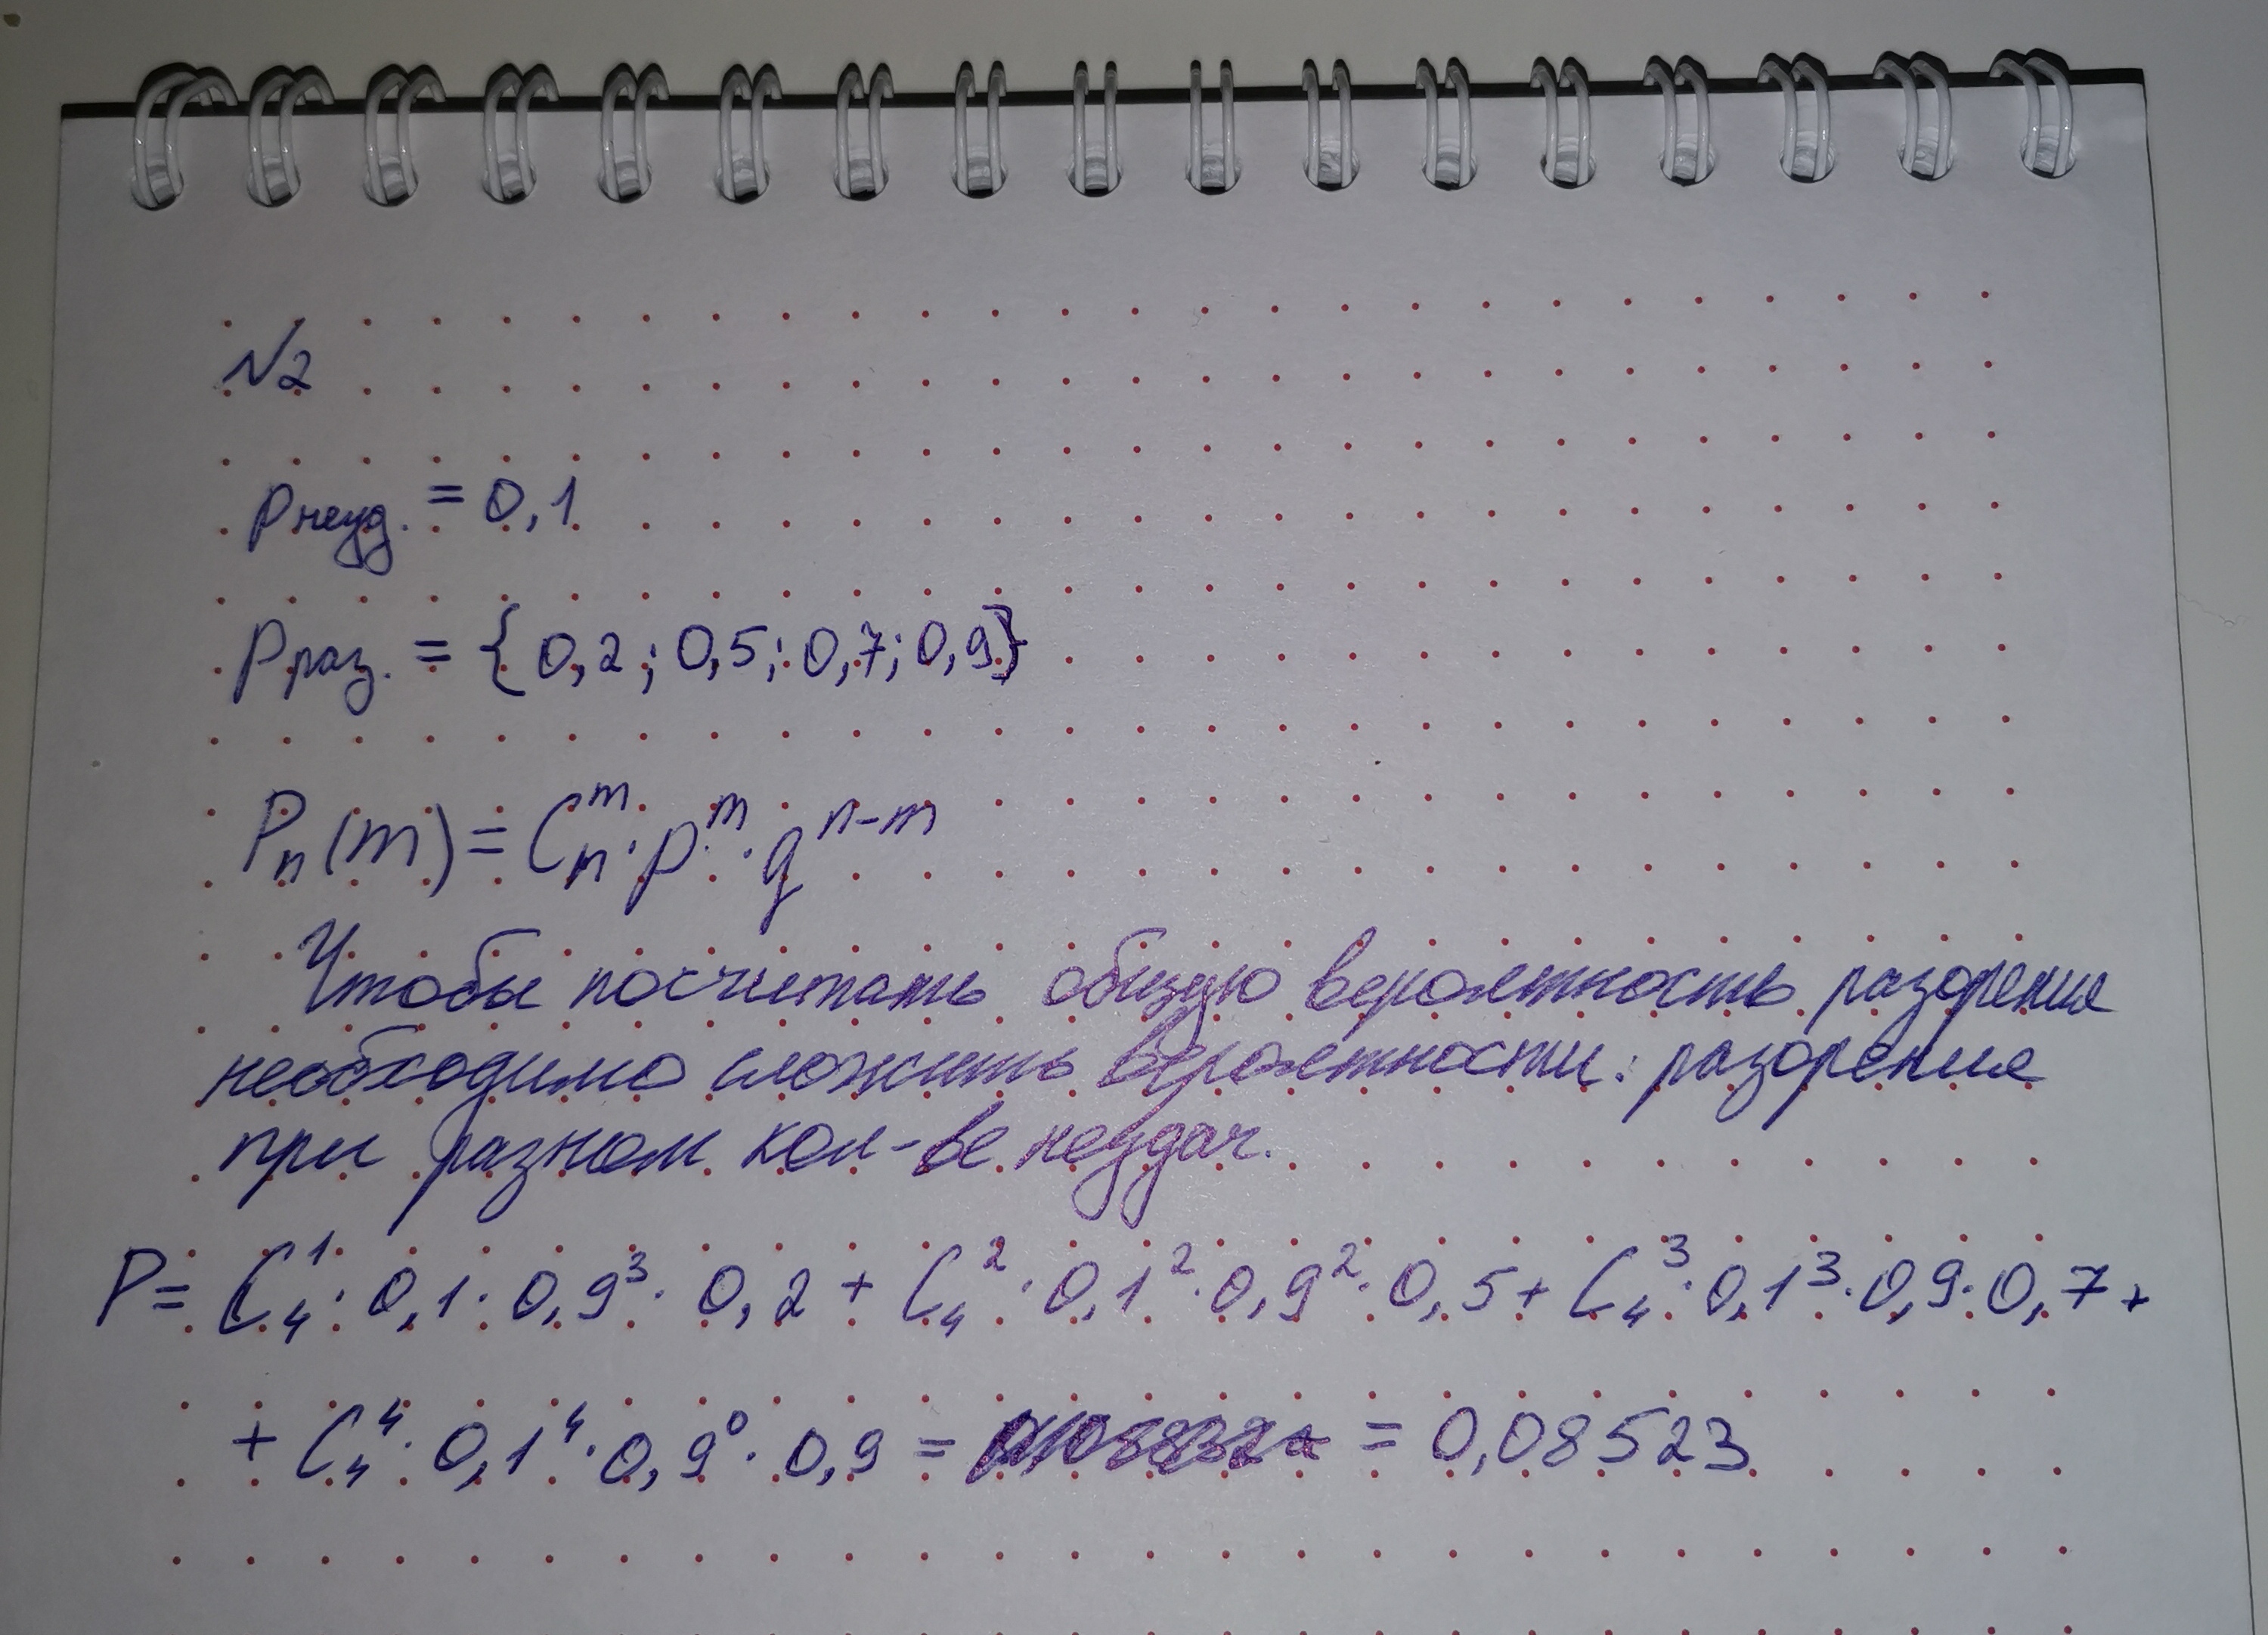 №2
Pнеуд. = 0,1
Pраз. = {0,2; 0,5; 0,7; 0,9}
Pₙ(m) = Cₙᵐ · pᵐ · qⁿ⁻ᵐ
Чтобы посчитать общую вероятность разорения
необходимо сложить вероятности разорения
при разном кол-ве неудач.
P = C₄¹ · 0,1 · 0,9³ · 0,2 + C₄² · 0,1² · 0,9² · 0,5 + C₄³ · 0,1³ · 0,9 · 0,7 +
+ C₄⁴ · 0,1⁴ · 0,9⁰ · 0,9 = = 0,08523